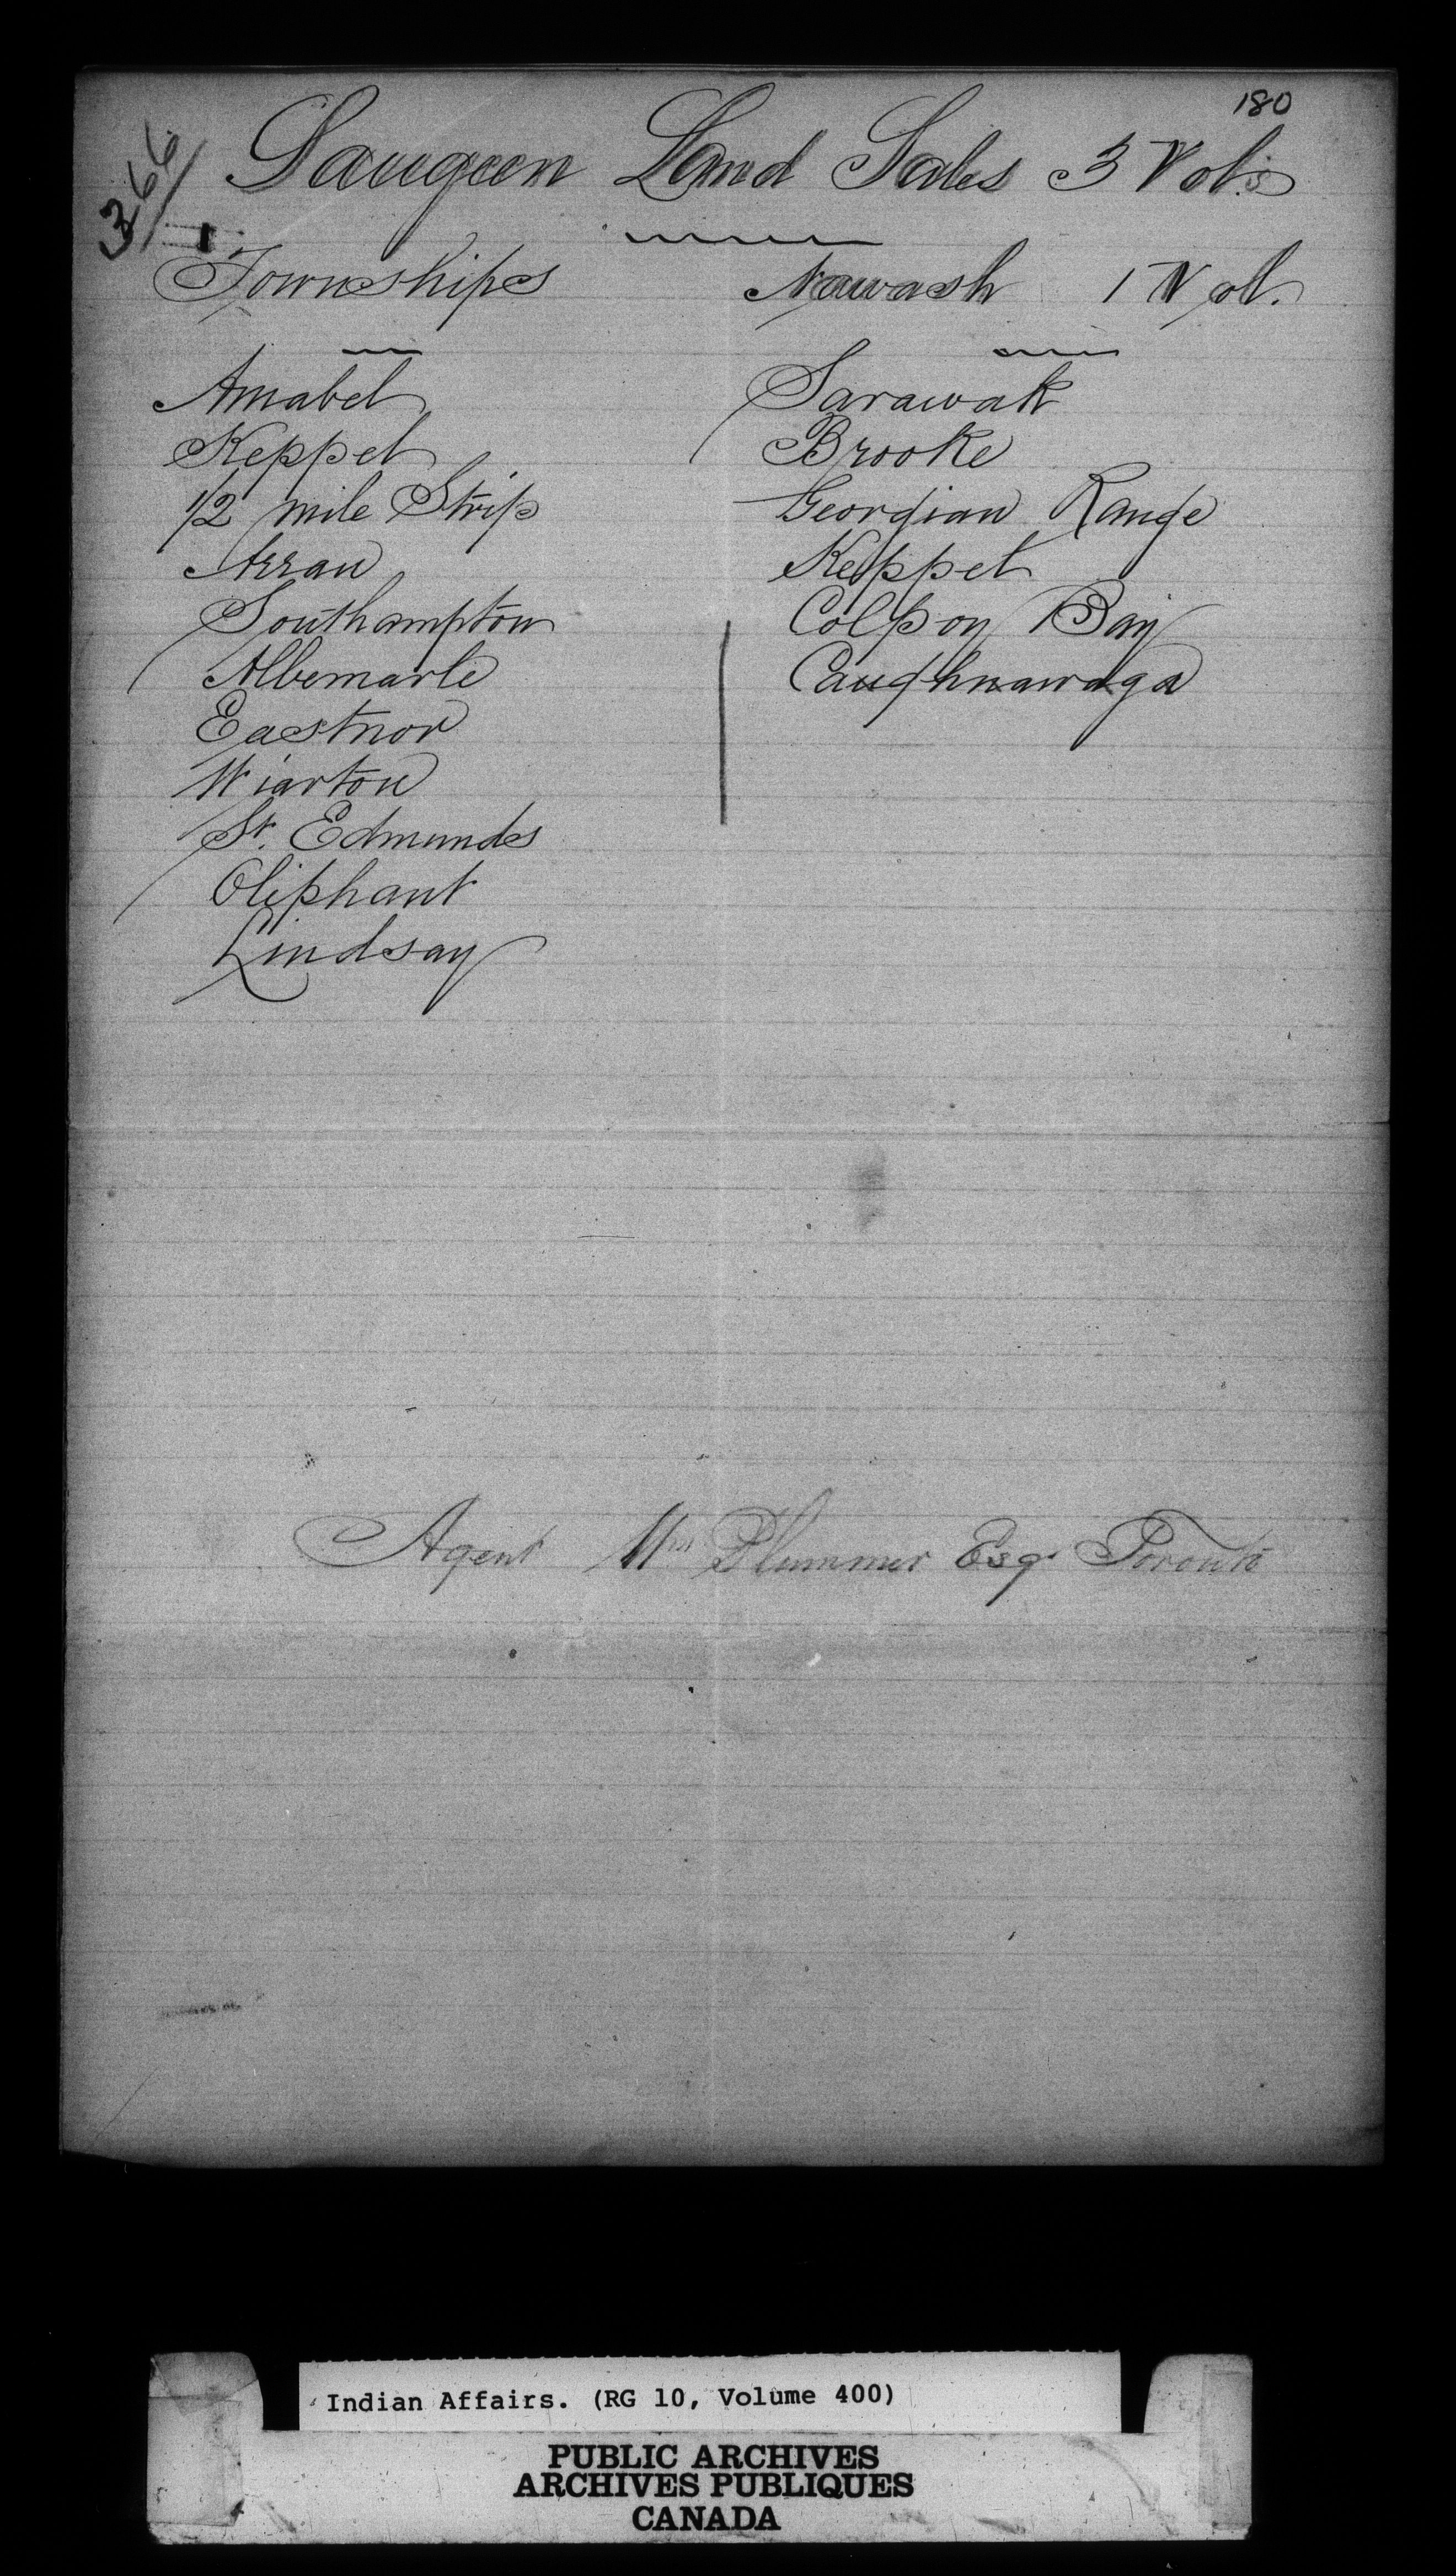 180
366
Saugeen Land Sales 3 Vols
Townships
Amabel
Keppel
1/2 mile Strip
Arran
Southampton
Albemarle
Eastnor
Wiarton
St. Edmunds
Oliphant
Lindsay
Nawash 1 Vol.
Sarawak
Brooke
Georgian Range
Keppel
Colpoy Bay
Caughnawaga
Agent Wm Plummer Esqr Toronto
Indian Affairs. (RG 10, Volume 400)
PUBLIC ARCHIVES
ARCHIVES PUBLIQUES
CANADA